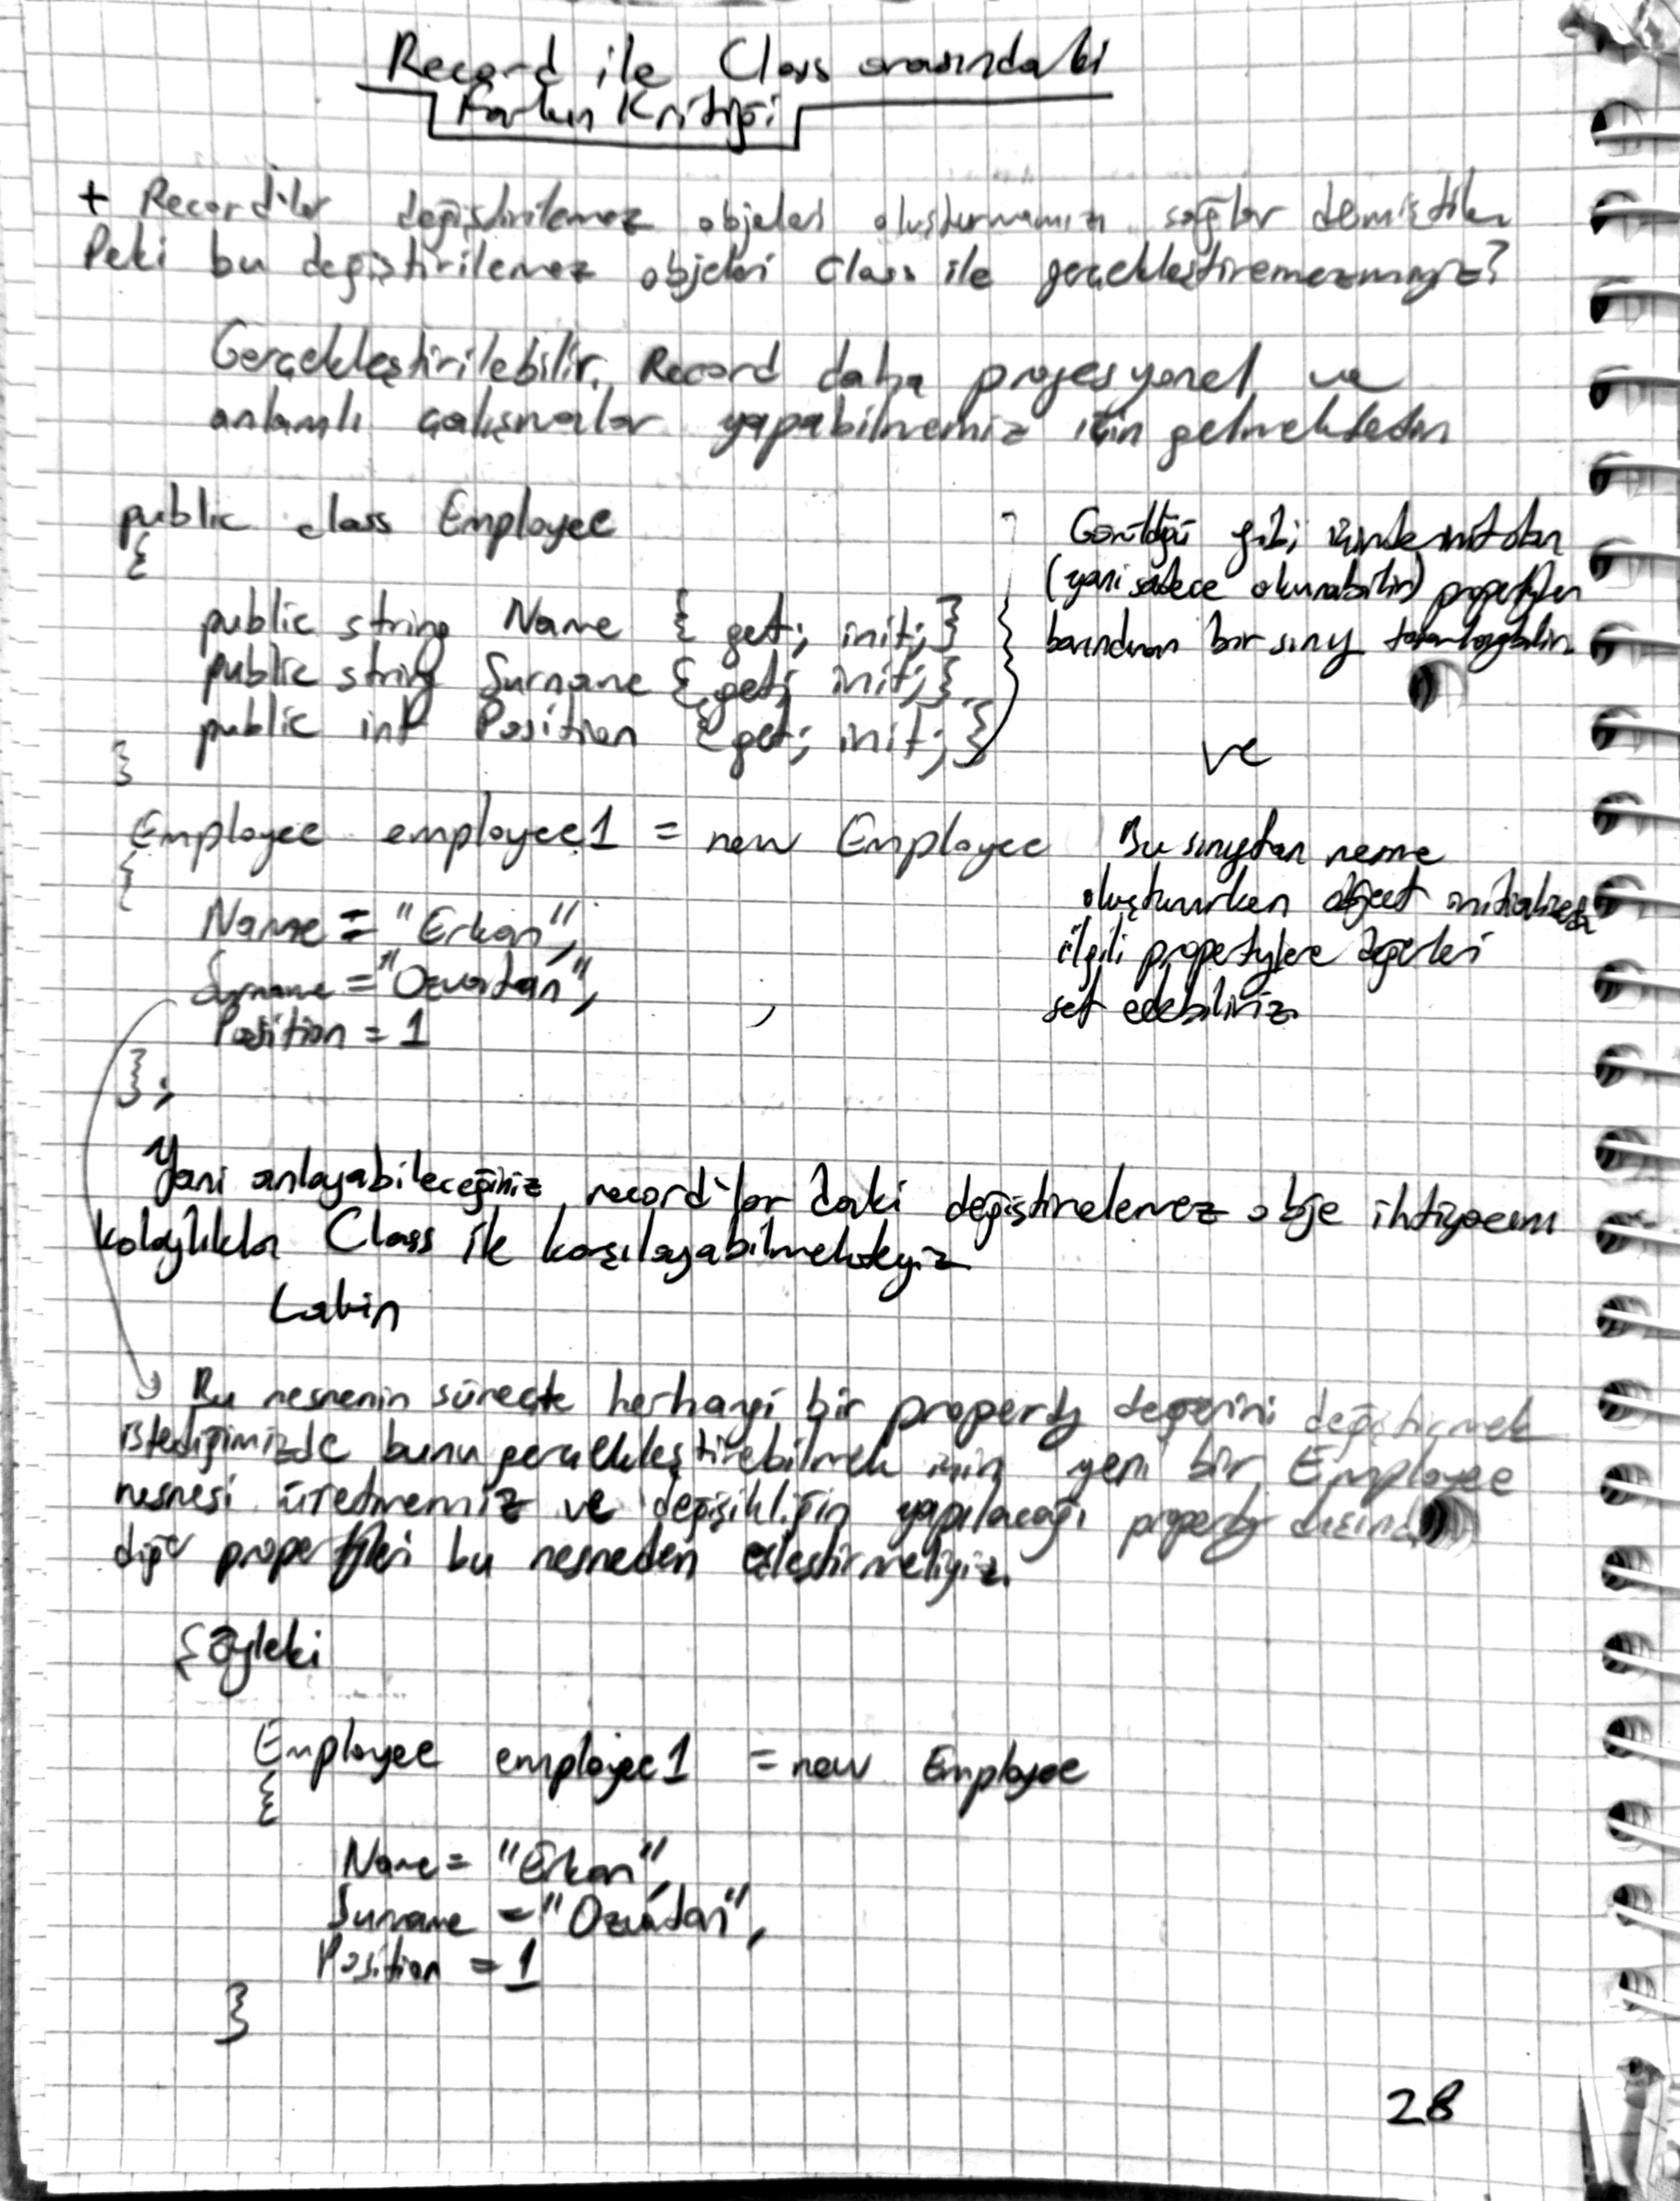 Record ile Class arasındaki
Farkın Kritiği
+ Record'lar değiştirilemez objeleri oluşturmamızı sağlar demiştik
Peki bu değiştirilemez objeleri class ile gerçekleştiremezmiyiz?
Gerçekleştirilebilir. Record daha profesyonel ve
anlamlı çalışmalar yapabilmemiz için gelmektedir
public class Employee
{
public string Name { get; init; }
public string Surname { get; init; }
public int Position { get; init; }
}
Görüldüğü gibi init olan
(yani sadece okunabilir) propertyler
barındıran bir sınıf tasarlayabilir
ve
Employee employee1 = new Employee
{
Name = "Erkan",
Surname = "Ozvatan",
Position = 1
};
Bu sınıftan nesne
oluştururken object initializer
ilgili propertylere değerleri
set edebiliriz.
Yani anlayabileceğiniz record'lar daki değiştirelemez obje ihtiyacını
kolaylıkla Class ile karşılayabilmekteyiz
Lakin
Bu nesnenin süreçte herhangi bir property değerini değiştirmek
istediğimizde bunu gerçekleştirebilmek için yeni bir Employee
nesnesi üretmemiz ve değişikliğin yapılacağı property dışında
diğer propertyleri bu nesneden eşleştirmeliyiz.
Şöyleki
Employee employee1 = new Employee
{
Name = "Erkan",
Surname = "Ozvatan",
Position = 1
}
28